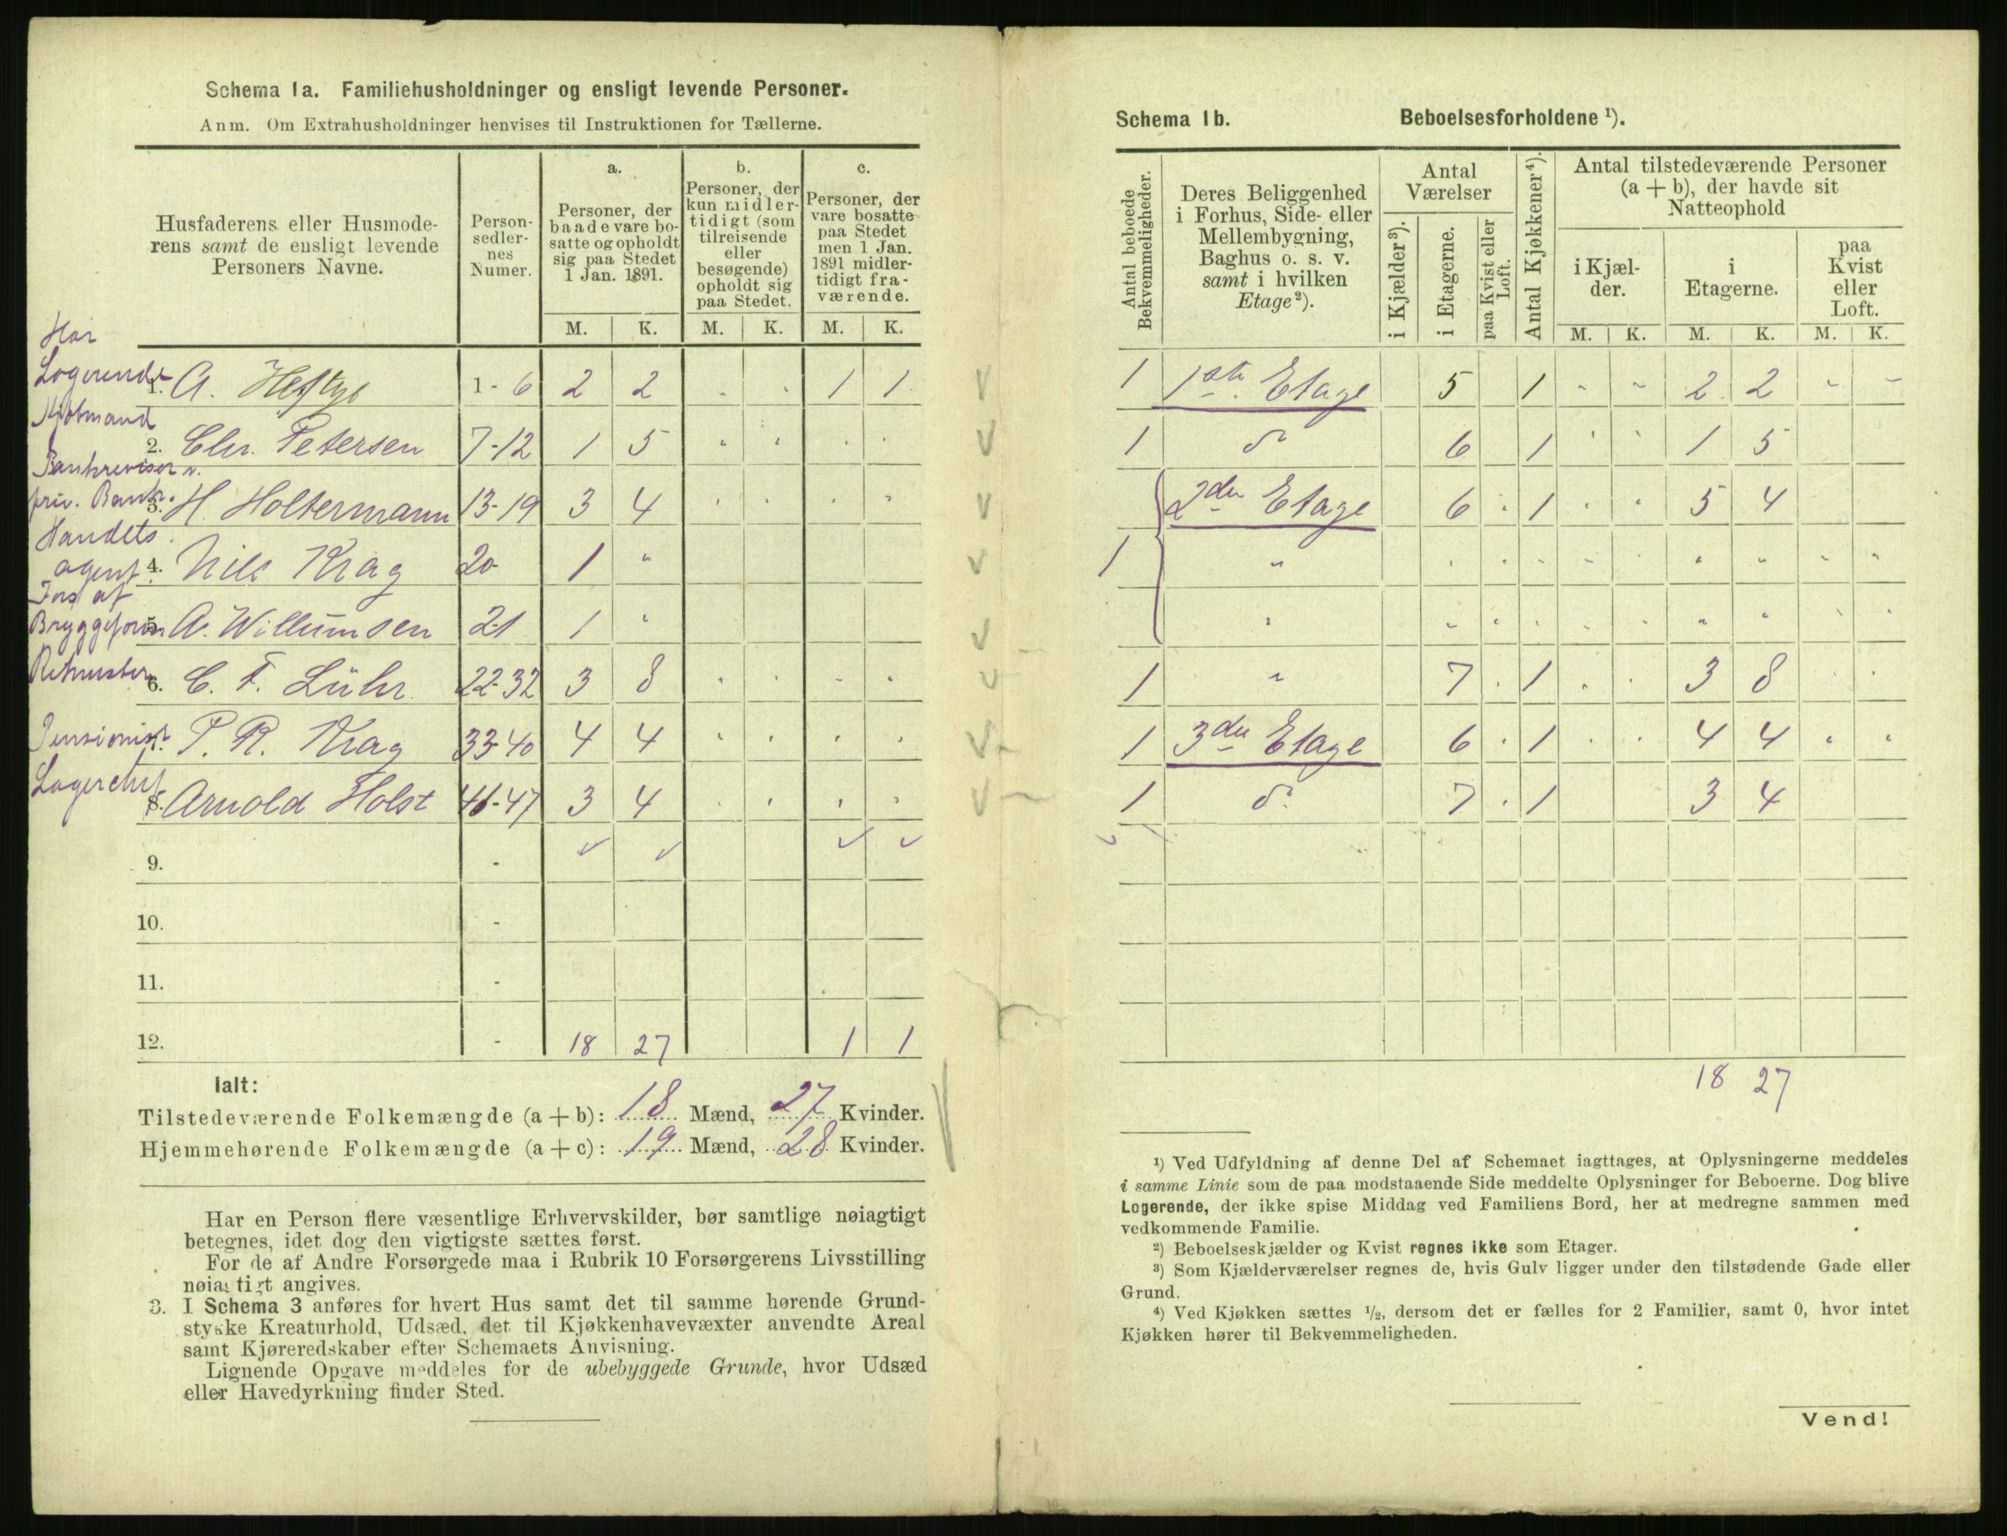 Schema 1a. Familiehusholdninger og ensligt levende Personer.
Anm. Om Extrahusholdninger henvises til Instruktionen for Tællerne.
Husfaderens eller Husmode-
rens samt de ensligt levende
Personers Navne.
Person-
sedler-
nes
Numer.
a.
Personer, der
baade vare bo-
satte og opholdt
sig paa Stedet
1 Jan. 1891.
b.
Personer, der
kun midler-
tidigt (som
tilreisende
eller
besøgende)
opholdt sig
paa Stedet.
c.
Personer, der
vare bosatte
paa Stedet
men 1 Jan.
1891 midler-
tidigt fra-
værende.
M. K. M. K. M. K.
Har
Logerende
1. A. Heftye 1-6 2 2 " " 1 1
Kjøbmand
2. Chr. Petersen 7-12 1 5 " " " "
Bankrevisor v.
priv. Bank.
3. H. Holtermann 13-19 3 4 " " " "
Handels
agent
4. Nils Krag 20 1 "
5. A. Willumsen 21 1 "
6. C. F. Lühr 22-32 3 8 " " " "
Pensionist
7. P. R. Krag 33-40 4 4 " " " "
Lagerchef
8. Arnold Holst 41-47 3 4 " " " "
9. -
10. -
11. -
12. - 18 27 1 1
Ialt:
Tilstedeværende Folkemængde (a + b): 18 Mænd, 27 Kvinder.
Hjemmehørende Folkemængde (a + c): 19 Mænd, 28 Kvinder.
Har en Person flere væsentlige Erhvervskilder, bør samtlige nøiagtigt
betegnes, idet dog den vigtigste sættes først.
For de af Andre Forsørgede maa i Rubrik 10 Forsørgerens Livsstilling
nøiagtigt angives.
3. I Schema 3 anføres for hvert Hus samt det til samme hørende Grund-
stykke Kreaturhold, Udsæd, det til Kjøkkenhavevæxter anvendte Areal
samt Kjøreredskaber efter Schemaets Anvisning.
Lignende Opgave meddeles for de ubebyggede Grunde, hvor Udsæd
eller Havedyrkning finder Sted.
Schema 1b. Beboelsesforholdene ¹).
Antal beboede
Bekvemmeligheder.
Deres Beliggenhed
i Forhus, Side- eller
Mellembygning,
Baghus o. s. v.
samt i hvilken
Etage ²).
Antal
Værelser
i Kjælder ³).
i Etagerne.
paa Kvist eller
Loft.
Antal Kjøkkener ⁴).
Antal tilstedeværende Personer
(a + b), der havde sit
Natteophold
i Kjæl-
der.
i
Etagerne.
paa
Kvist
eller
Loft.
M. K. M. K. M. K.
1 1ste Etage 5 1 " " 2 2 " "
1 do 6 1 " " 1 5
2den Etage 6 " 1 " " 5 4
1 " " " " " " " " " " "
" " " " " " " " " "
1 " 7 " 1 " " 3 8 " "
1 3die Etage 6 " 1 " " 4 4 " "
1 do 7 " 1 3 4
18 27
¹) Ved Udfyldning af denne Del af Schemaet iagttages, at Oplysningerne meddeles
i samme Linie som de paa modstaaende Side meddelte Oplysninger for Beboerne. Dog blive
Logerende, der ikke spise Middag ved Familiens Bord, her at medregne sammen med
vedkommende Familie.
²) Beboelseskjælder og Kvist regnes ikke som Etager.
³) Som Kjælderværelser regnes de, hvis Gulv ligger under den tilstødende Gade eller
Grund.
⁴) Ved Kjøkken sættes ¹/₂, dersom det er fælles for 2 Familier, samt 0, hvor intet
Kjøkken hører til Bekvemmeligheden.
Vend!